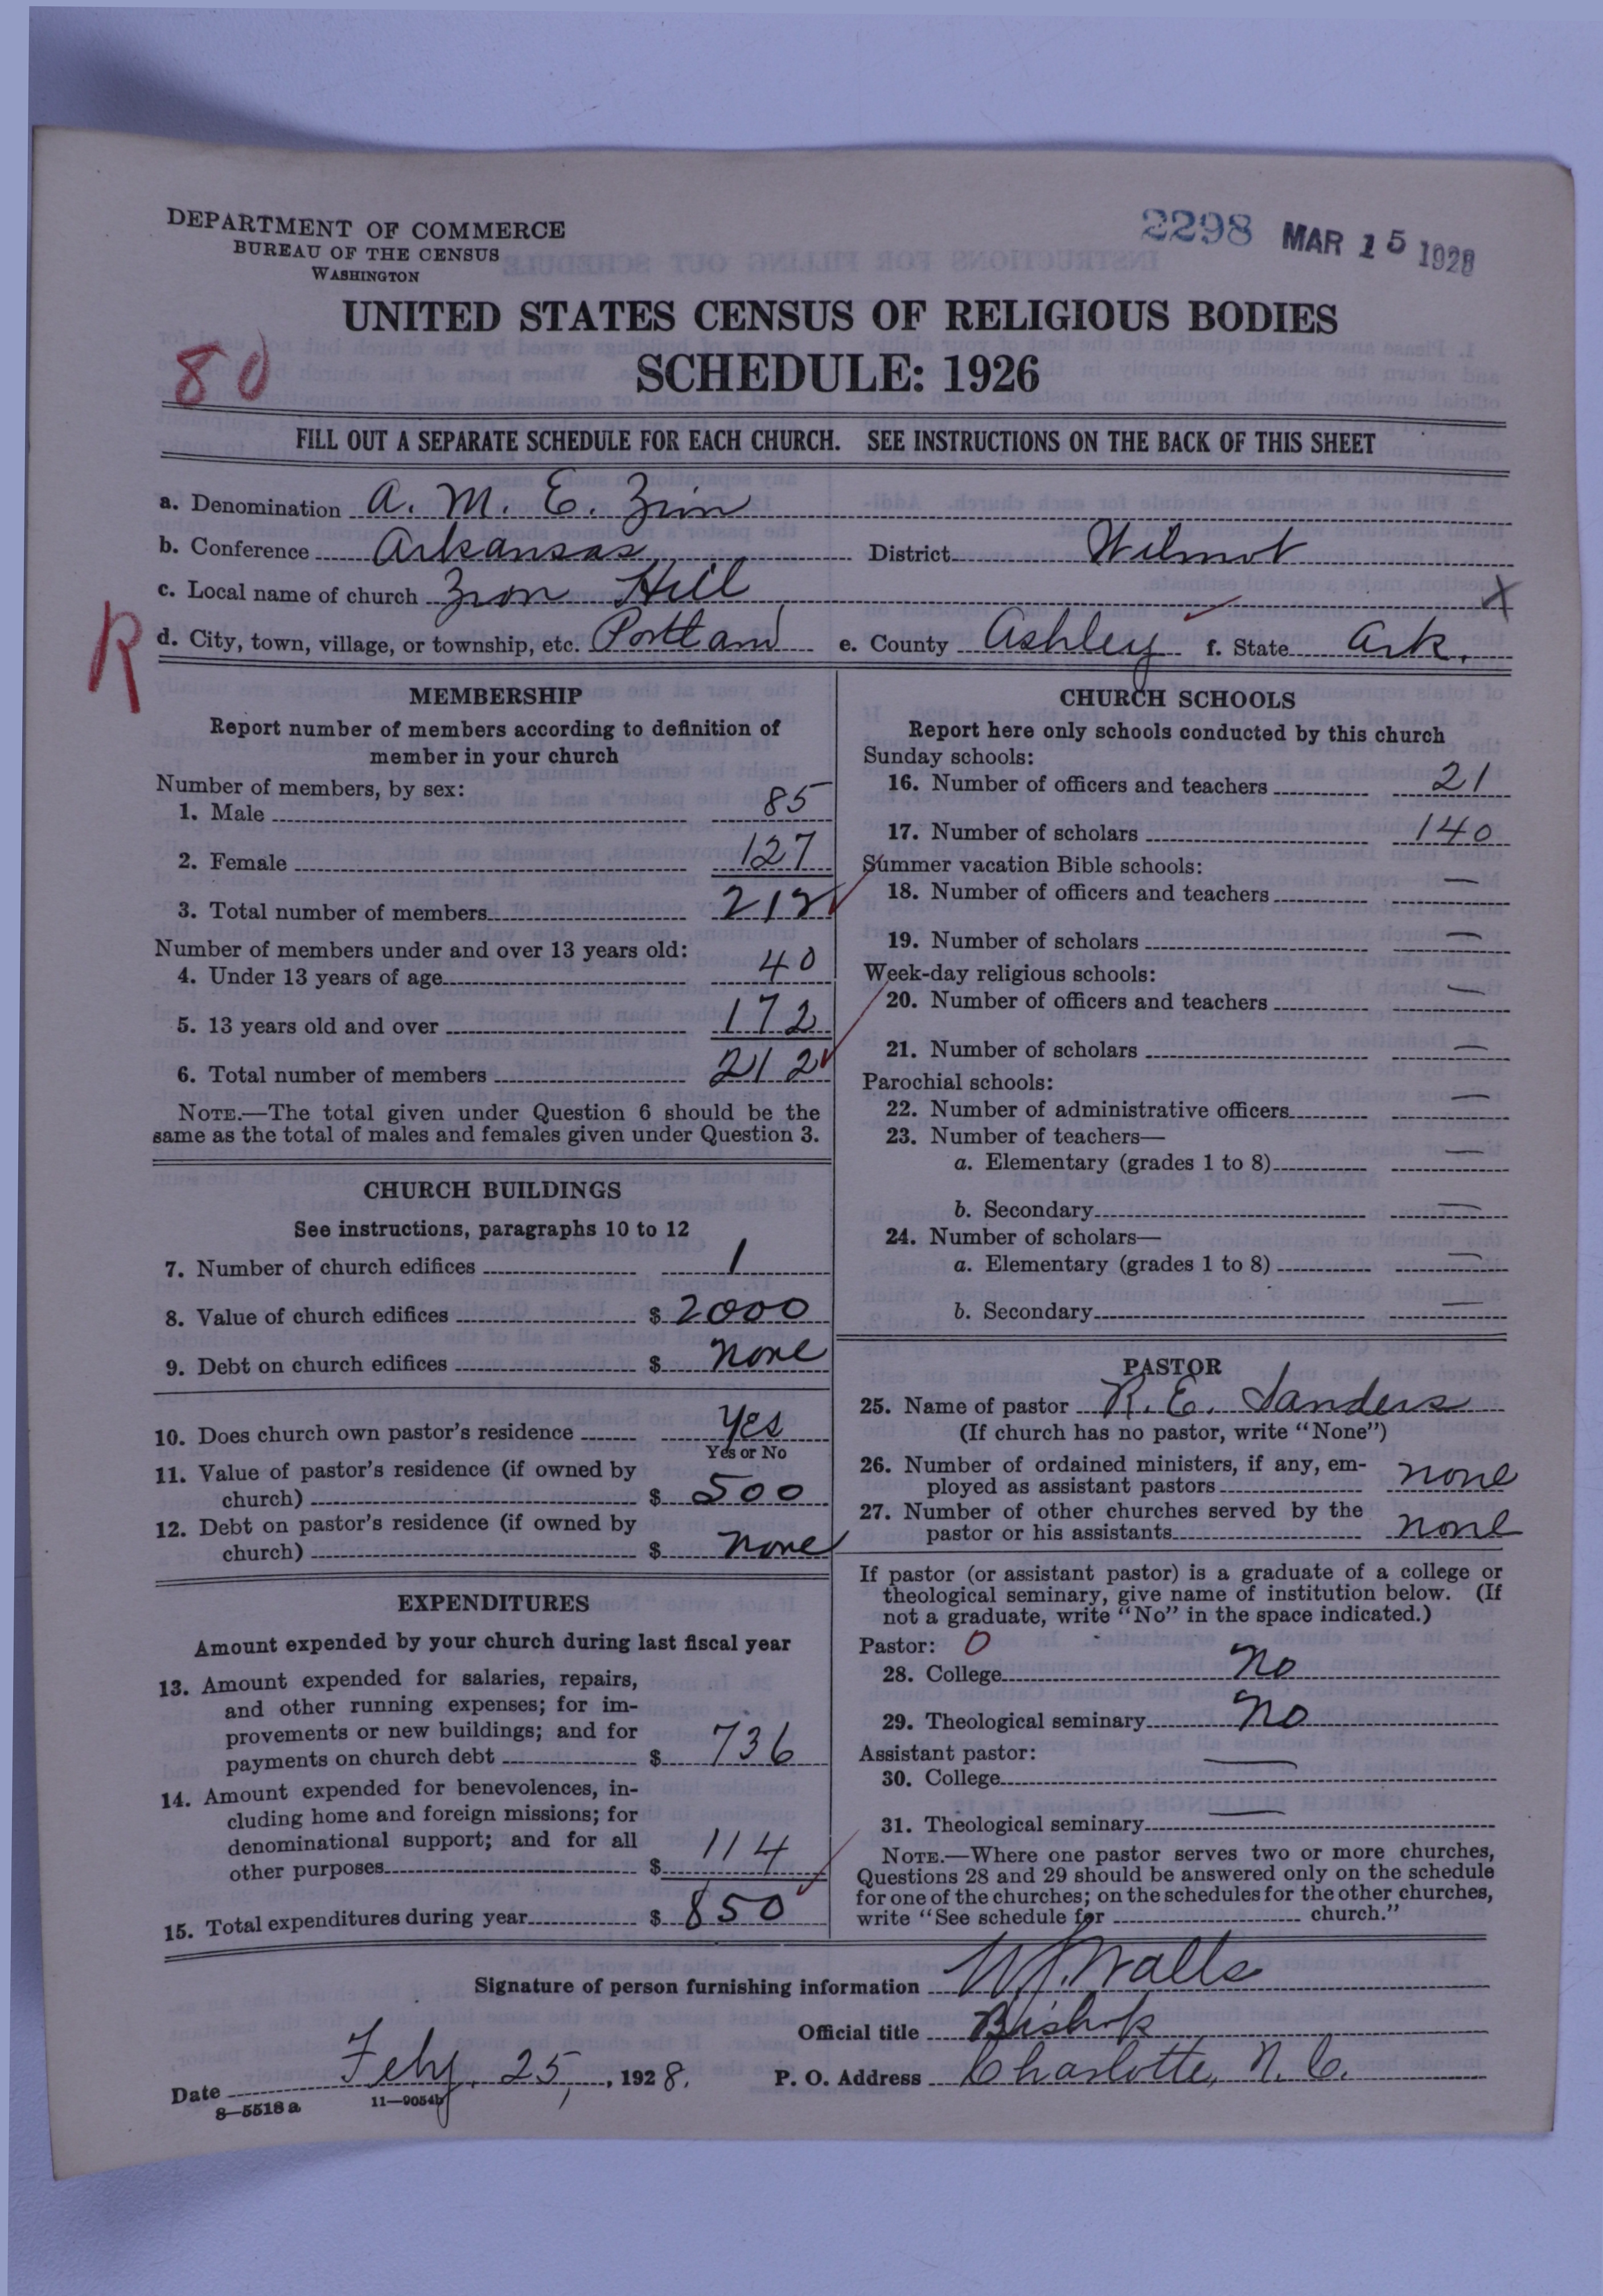 DEPARTMENT OF COMMERCE
BUREAU OF THE CENSUS
WASHINGTON
2298 MAR 15 1928
UNITED STATES CENSUS OF RELIGIOUS BODIES
SCHEDULE: 1926
80
FILL OUT A SEPARATE SCHEDULE FOR EACH CHURCH. SEE INSTRUCTIONS ON THE BACK OF THIS SHEET
a. Denomination A. M. E. Zion
b. Conference Arkansas District Wilmot
c. Local name of church Zion Hill X
R
d. City, town, village, or township, etc. Portland e. County Ashley f. State Ark.
MEMBERSHIP
Report number of members according to definition of
member in your church
Number of members, by sex:
1. Male 85
2. Female 127
3. Total number of members 212
Number of members under and over 13 years old:
4. Under 13 years of age 40
5. 13 years old and over 172
6. Total number of members 212
NOTE.—The total given under Question 6 should be the
same as the total of males and females given under Question 3.
CHURCH BUILDINGS
See instructions, paragraphs 10 to 12
7. Number of church edifices 1
8. Value of church edifices $ 2000
9. Debt on church edifices $ none
10. Does church own pastor's residence Yes
Yes or No
11. Value of pastor's residence (if owned by
church) $ 500
12. Debt on pastor's residence (if owned by
church) $ none
EXPENDITURES
Amount expended by your church during last fiscal year
13. Amount expended for salaries, repairs,
and other running expenses; for im-
provements or new buildings; and for
payments on church debt $ 736
14. Amount expended for benevolences, in-
cluding home and foreign missions; for
denominational support; and for all
other purposes $ 114
15. Total expenditures during year $ 850
CHURCH SCHOOLS
Report here only schools conducted by this church
Sunday schools:
16. Number of officers and teachers 21
17. Number of scholars 140
Summer vacation Bible schools:
18. Number of officers and teachers —
19. Number of scholars —
Week-day religious schools:
20. Number of officers and teachers —
21. Number of scholars —
Parochial schools:
22. Number of administrative officers —
23. Number of teachers—
a. Elementary (grades 1 to 8) —
b. Secondary —
24. Number of scholars—
a. Elementary (grades 1 to 8) —
b. Secondary —
PASTOR
25. Name of pastor R. E. Sanders
(If church has no pastor, write "None")
26. Number of ordained ministers, if any, em-
ployed as assistant pastors none
27. Number of other churches served by the
pastor or his assistants none
If pastor (or assistant pastor) is a graduate of a college or
theological seminary, give name of institution below. (If
not a graduate, write "No" in the space indicated.)
Pastor: 0
28. College No
29. Theological seminary No
Assistant pastor:
30. College —
31. Theological seminary —
NOTE.—Where one pastor serves two or more churches,
Questions 28 and 29 should be answered only on the schedule
for one of the churches; on the schedules for the other churches,
write "See schedule for church."
Signature of person furnishing information W. J. Walls
Official title Bishop
Date Feby. 25, , 1928. P. O. Address Charlotte, N. C.
8—5518 a 11—9054b